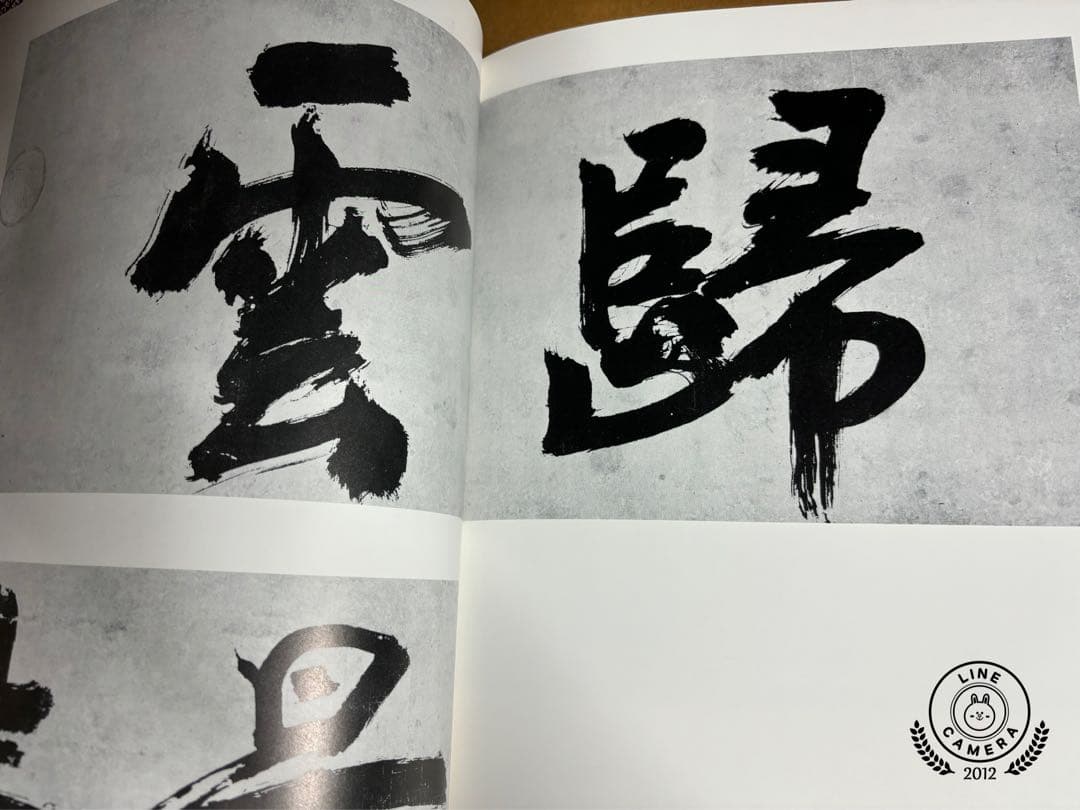 歸雲
旦
LINE
CAMERA
2012